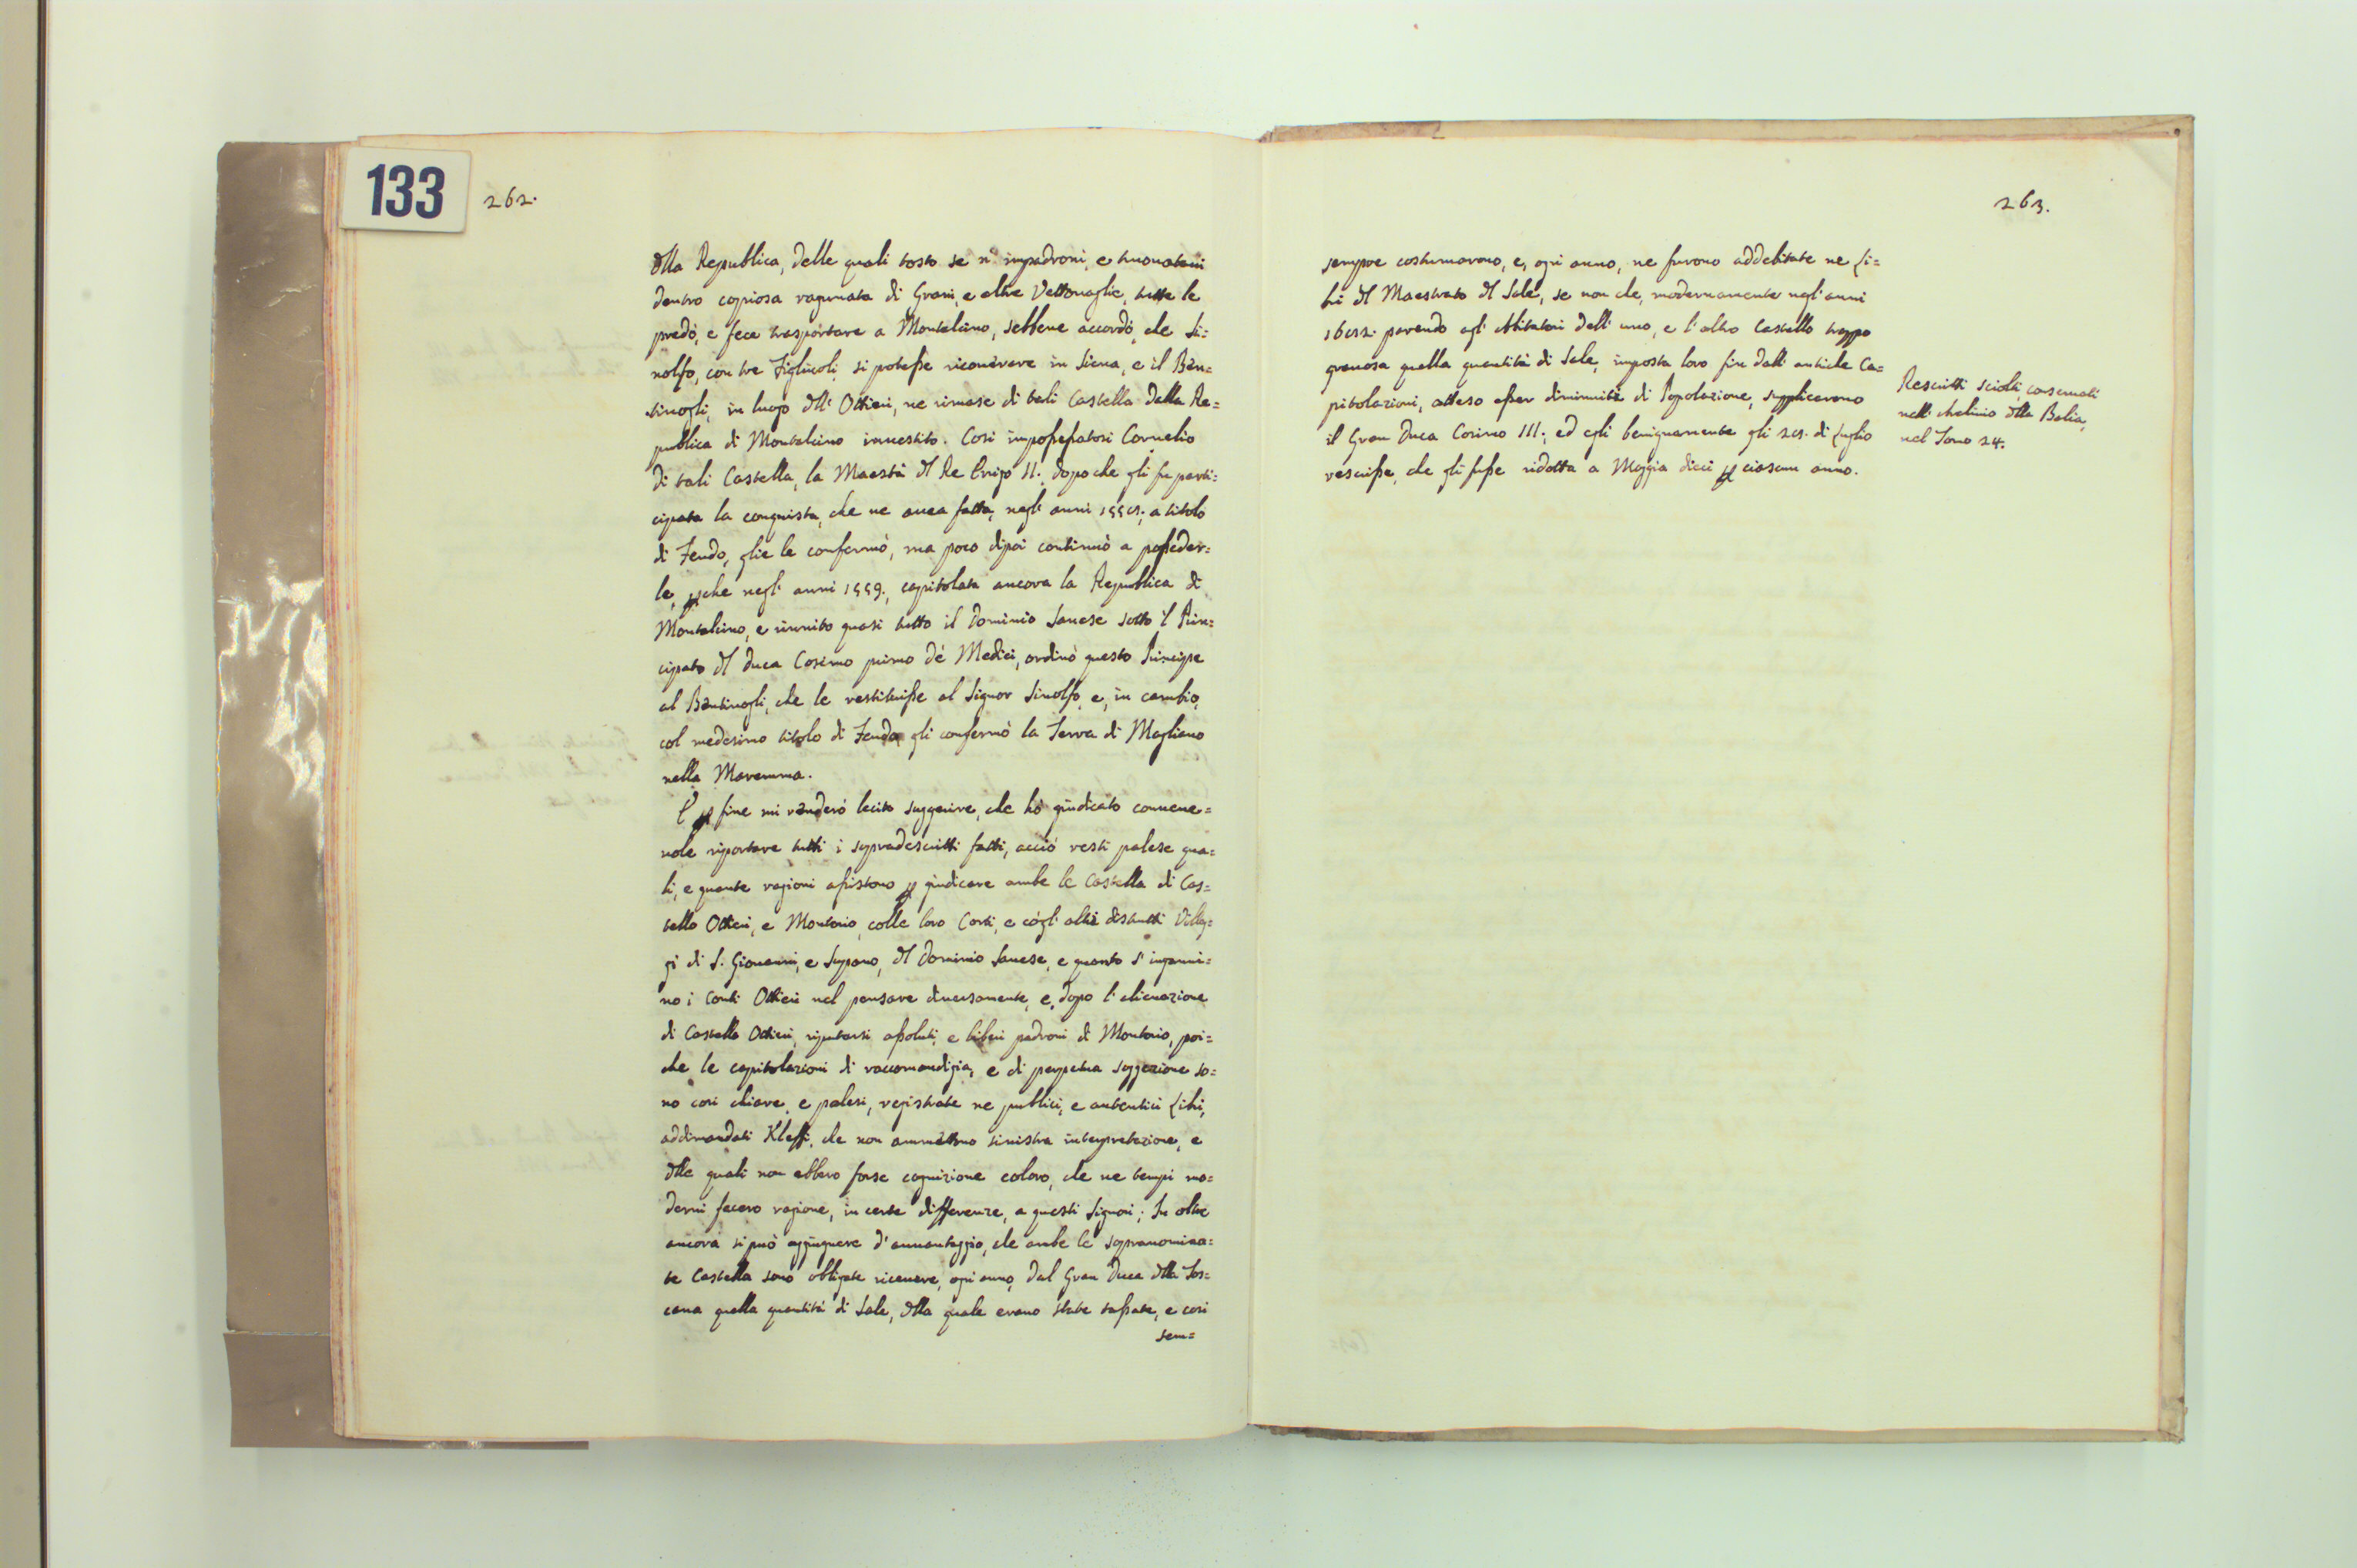 133
262.
dlla Republica, delle quali tosto se n' impadroni, e truovatavi
dentro copiosa ragunata di Grani, e altre Vettovaglie, tutte le
predò, e fece trasportare a Montalcino, sebbene accordò, che Si=
nolfo, con tre Figliuoli, si potesse ricoverare in Siena, e il Ben=
tivogli, in luogo dll' Ottieri, ne rimase di tali Castella dalla Re=
publica di Montalcino investito. Cosi impossessatosi Cornelio
di tali Castella, la Maestà dl Re Enrigo II., dopo che gli fu parti=
cipata la conquista, che ne avea fatta, negl' anni 155 a titolo
di Feudo, glie le confermò, ma poco dipoi continuò a posseder=
le, pche negl' anni 1559., capitolata ancora la Republica di
Montalcino, e riunito quasi tutto il Dominio Sanese sotto 'l Prin=
cipato dl Duca Cosimo primo de' Medici, ordinò questo Principe
al Bentivogli, che le restituisse al Signor Sinolfo, e, in cambio,
col medesimo titolo di Feudo gli confermò la Terra di Magliano
nella Maremma.
E p fine mi renderò lecito suggerire, che hò giudicato convene=
vole riportare tutti i sopradescritti fatti, acciò resti palese qua=
li, e quante ragioni assistono p giudicare ambe le Castella di Cas=
tello Ottieri, e Montorio, colle loro Corti, e cògl' altri distrutti Villag=
gi di S. Giovanni, e Sopano, dl Dominio Sanese, e quanto s' inganni=
no i Conti Ottieri nel pensare diversamente, e, dopo l' alienazione
di Castello Ottieri, riputarsi assoluti, e liberi padroni di Montorio, poi=
che le capitolazioni di raccomandigia, e di perpetua soggezione so=
no cosi chiare, e palesi, registrate ne publici, e autentici Libri,
addimandati Kleffi, che non ammettono sinistra interpretazione, e
dlle quali non ebbero forse cognizione coloro, che ne tempi mo=
derni fecero ragione, in certe differenze, a questi Signori; In oltre
ancora si può aggiugnere d' avvantaggio, che ambe le sopranomina=
te Castella sono obligate ricevere, ogni anno, dal Gran Duca dlla Tos=
cana quella quantità di Sale, dlla quale erano state tassate, e cosi
sem=
263.
sempre costumarono, e, ogni anno, ne furono addebitate ne Li=
bri dl Maestrato dl Sale, se non che, modernamente negl' anni
parendo agl' Abitatori dell' uno, e l' altro Castello troppo
gravosa quella quantità di Sale, imposta loro fin dall' antiche Ca=
pitolazioni, atteso esser diminuita di Popolazione, supplicarono
il Gran Duca Cosimo III., ed egli benignamente gli di Luglio
rescrisse, che gli fusse ridotta a Moggia dieci p ciascun anno.
Rescritti sciolti, conservati
nell' Archivio dlla Balia,
nel Tomo 24.